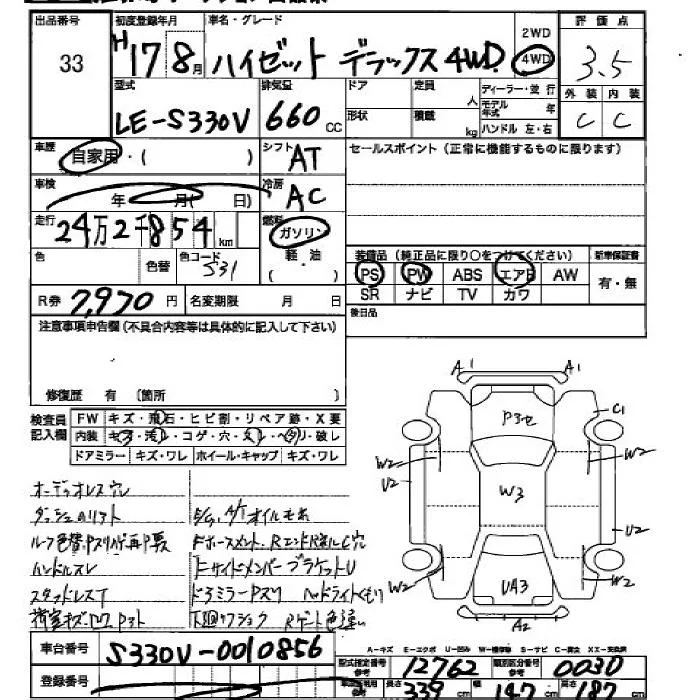 出品番号 初度登録年月 車名・グレード 2WD 評価点
33 H17 8月 ハイゼット デラックス4WD 4WD 3.5
型式 排気量 ドア 定員 人 ディーラー・並行 外装 内装
LE-S330V 660cc 形状 積載 kg モデル年式 年 ハンドル 左・右 C C
車歴 自家用・( ) シフト AT セールスポイント(正常に機能するものに限ります)
車検 年 月( 日) 冷房 AC
走行 24万2千854km 燃料 ガソリン
色 色替 色コード S31 軽・油 ( )
装備品(純正品に限り○をつけてください) 新車保証書
PS PW ABS エアB AW 有・無
SR ナビ TV カワ
R券 7,970円 名変期限 月 日 後日品
注意事項申告欄(不具合内容等は具体的に記入して下さい)
修復歴 有 〔箇所 〕
検査員記入欄 FW キズ・飛石・ヒビ割・リペア跡・X要
内装 キズ・汚レ・コゲ・穴・スレ・ヘタリ・破レ
ドアミラー キズ・ワレ ホイール・キャップ キズ・ワレ
A1 A1
P3セ C1
W2 W2
U2 W3 U2
W2 UA3 W2
A2
オーディオレス穴
オイルモレ
ハンドルスレ
Fサイドメンバーブラケット U
スタッドレスT ヘッドライトくもり
車台番号 S330V-0010856
登録番号
A-キズ E-エクボ U-凹み W-補修跡 S-サビ C-腐食 XX-交換済
型式指定番号 参考 12762 類別区分番号 参考 0030
339 cm 147 cm 長さ 187 cm